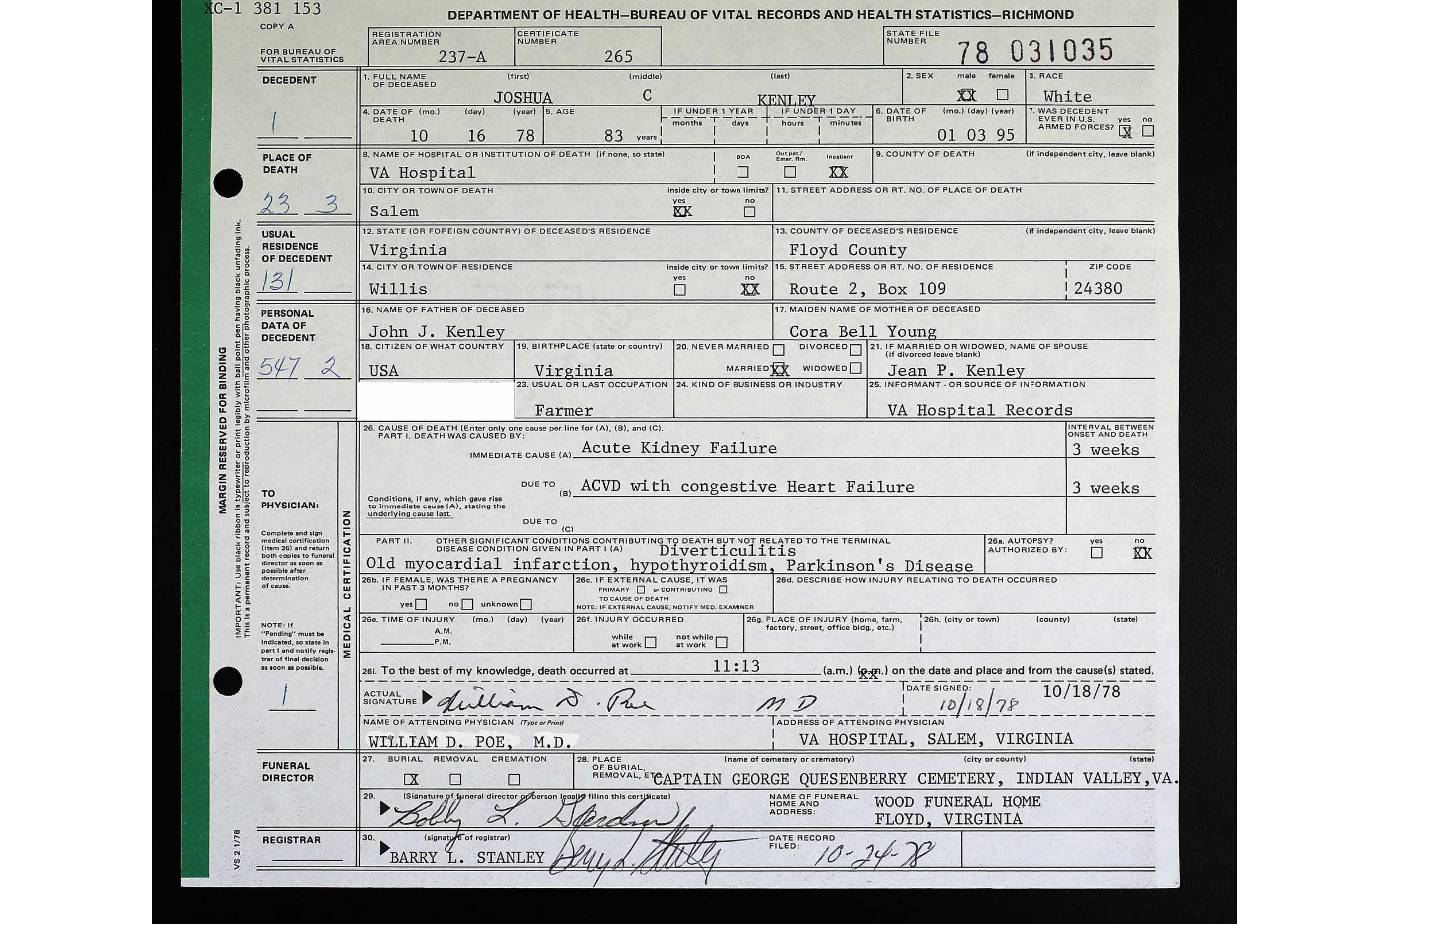 XC-1 381 153
COPY A
DEPARTMENT OF HEALTH—BUREAU OF VITAL RECORDS AND HEALTH STATISTICS—RICHMOND
FOR BUREAU OF VITAL STATISTICS
REGISTRATION AREA NUMBER 237-A
CERTIFICATE NUMBER 265
STATE FILE NUMBER 78 031035
DECEDENT
1
1. FULL NAME OF DECEASED (first) (middle) (last)
JOSHUA C KENLEY
2. SEX male female XX
3. RACE White
4. DATE OF DEATH (mo.) (day) (year) 10 16 78
5. AGE 83 years
IF UNDER 1 YEAR months days
IF UNDER 1 DAY hours minutes
6. DATE OF BIRTH (mo.) (day) (year) 01 03 95
7. WAS DECEDENT EVER IN U.S. ARMED FORCES? yes no X
PLACE OF DEATH
23 3
8. NAME OF HOSPITAL OR INSTITUTION OF DEATH (if none, so state)
VA Hospital
DOA Out pat./Emer. Rm. Inpatient XX
9. COUNTY OF DEATH (if independent city, leave blank)
10. CITY OR TOWN OF DEATH inside city or town limits? yes no
Salem XX
11. STREET ADDRESS OR RT. NO. OF PLACE OF DEATH
USUAL RESIDENCE OF DECEDENT
131
12. STATE (OR FOFEIGN COUNTRY) OF DECEASED'S RESIDENCE
Virginia
13. COUNTY OF DECEASED'S RESIDENCE (if independent city, leave blank)
Floyd County
14. CITY OR TOWN OF RESIDENCE inside city or town limits? yes no
Willis XX
15. STREET ADDRESS OR RT. NO. OF RESIDENCE ZIP CODE
Route 2, Box 109 24380
PERSONAL DATA OF DECEDENT
547 2
16. NAME OF FATHER OF DECEASED
John J. Kenley
17. MAIDEN NAME OF MOTHER OF DECEASED
Cora Bell Young
18. CITIZEN OF WHAT COUNTRY
USA
19. BIRTHPLACE (state or country)
Virginia
20. NEVER MARRIED DIVORCED
MARRIED XX WIDOWED
21. IF MARRIED OR WIDOWED, NAME OF SPOUSE (if divorced leave blank)
Jean P. Kenley
23. USUAL OR LAST OCCUPATION
Farmer
24. KIND OF BUSINESS OR INDUSTRY
25. INFORMANT - OR SOURCE OF INFORMATION
VA Hospital Records
MARGIN RESERVED FOR BINDING
IMPORTANT: Use black ribbon is typewriter or print legibly with ball point pen having black unfading ink.
This is a permanent record and subject to reproduction by microfilm and other photographic process.
MEDICAL CERTIFICATION
TO PHYSICIAN:
Complete and sign medical certification (item 26) and return both copies to funeral director as soon as possible after determination of cause.
NOTE: If "Pending" must be indicated, so state in part I and notify registrar of final decision as soon as possible.
1
26. CAUSE OF DEATH (Enter only one cause per line for (A), (B), and (C).
PART I. DEATH WAS CAUSED BY:
INTERVAL BETWEEN ONSET AND DEATH
IMMEDIATE CAUSE (A) Acute Kidney Failure 3 weeks
DUE TO (B) ACVD with congestive Heart Failure 3 weeks
Conditions, if any, which gave rise to immediate cause (A), stating the underlying cause last.
DUE TO (C)
PART II. OTHER SIGNIFICANT CONDITIONS CONTRIBUTING TO DEATH BUT NOT RELATED TO THE TERMINAL DISEASE CONDITION GIVEN IN PART I (A)
Diverticulitis
Old myocardial infarction, hypothyroidism, Parkinson's Disease
26a. AUTOPSY? AUTHORIZED BY: yes no XX
26b. IF FEMALE, WAS THERE A PREGNANCY IN PAST 3 MONTHS?
yes no unknown
26c. IF EXTERNAL CAUSE, IT WAS
PRIMARY or CONTRIBUTING
TO CAUSE OF DEATH
NOTE: IF EXTERNAL CAUSE, NOTIFY MED. EXAMINER
26d. DESCRIBE HOW INJURY RELATING TO DEATH OCCURRED
26e. TIME OF INJURY (mo.) (day) (year)
A.M.
P.M.
26f. INJURY OCCURRED
while at work not while at work
26g. PLACE OF INJURY (home, farm, factory, street, office bldg., etc.)
26h. (city or town) (county) (state)
26i. To the best of my knowledge, death occurred at 11:13 (a.m.) (p.m.) on the date and place and from the cause(s) stated.
ACTUAL SIGNATURE William D. Poe MD
DATE SIGNED: 10/18/78 10/18/78
NAME OF ATTENDING PHYSICIAN (Type or Print)
WILLIAM D. POE, M.D.
ADDRESS OF ATTENDING PHYSICIAN
VA HOSPITAL, SALEM, VIRGINIA
FUNERAL DIRECTOR
27. BURIAL REMOVAL CREMATION
X
28. PLACE OF BURIAL, REMOVAL, ETC. (name of cemetery or crematory) (city or county) (state)
CAPTAIN GEORGE QUESENBERRY CEMETERY, INDIAN VALLEY, VA.
29. (Signature of funeral director or person legally filing this certificate)
Bobby L.
NAME OF FUNERAL HOME AND ADDRESS: WOOD FUNERAL HOME
FLOYD, VIRGINIA
REGISTRAR
30. (signature of registrar)
BARRY L. STANLEY Barry L. Stanley
DATE RECORD FILED: 10-24-78
VS 2 1/78